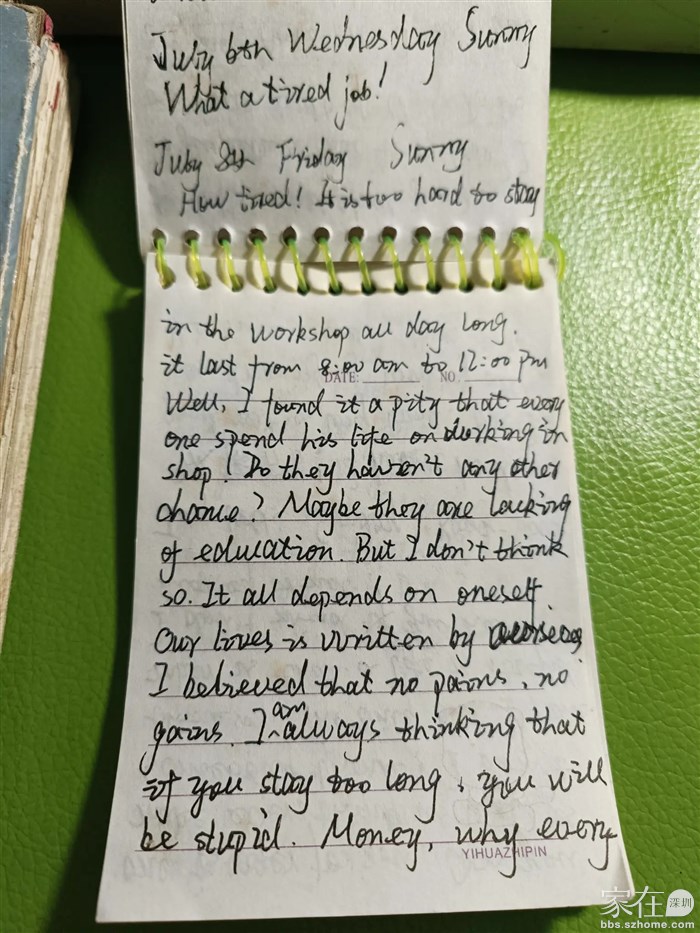 July 6th Wednesday Sunny
What a tired job!
July 8th Friday Sunny
How tired! It is too hard to stay
in the workshop all day long.
it last from 8:00 am to 12:00 pm
DATE: NO.
Well, I found it a pity that every
one spend his life on working in
shop! Do they haven't any other
chance? Maybe they are lacking
of education. But I don't think
so. It all depends on oneself.
Our lives is written by
I believed that no pains, no
gains. I am always thinking that
if you stay too long, you will
be stupid. Money, why every
YIHUAZHIPIN
家在深圳
bbs.szhome.com